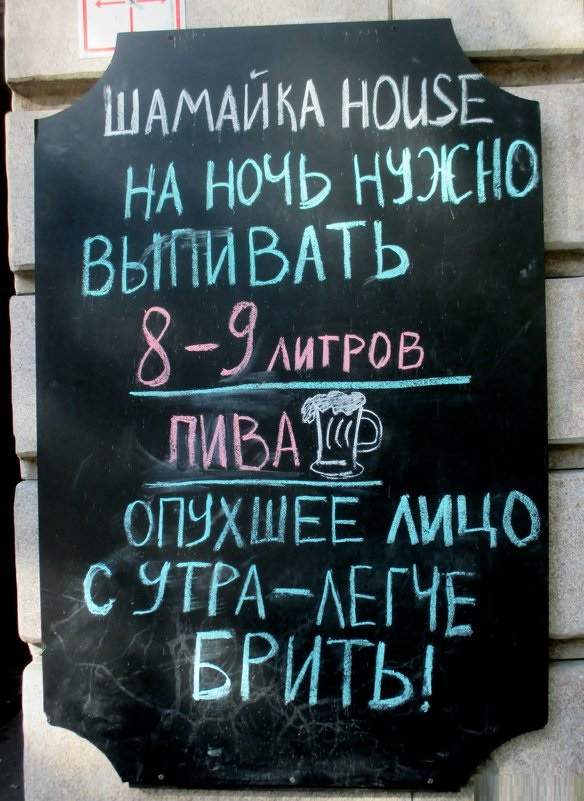 ШАМАЙКА HOUSE
НА НОЧЬ НУЖНО
ВЫПИВАТЬ
8-9 ЛИТРОВ
ПИВА
ОПУХШЕЕ ЛИЦО
С УТРА-ЛЕГЧЕ
БРИТЬ!